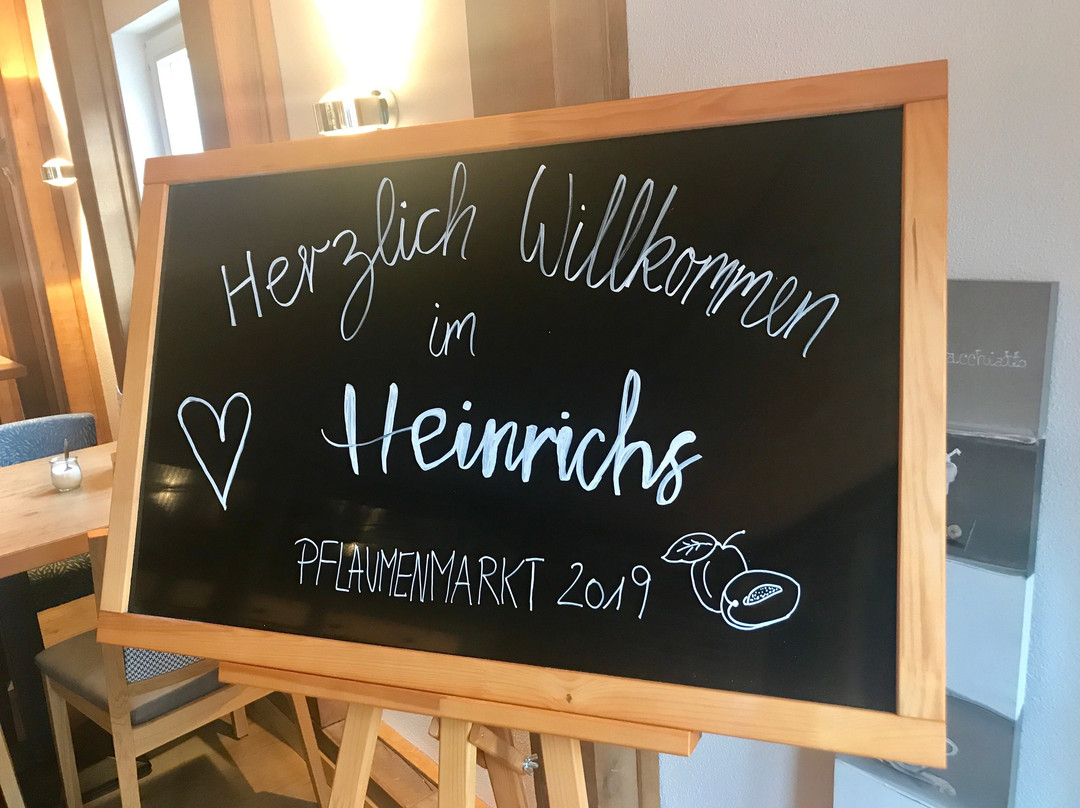 Herzlich Willkommen
im
Heinrichs
PFLAUMENMARKT 2019
acchiato